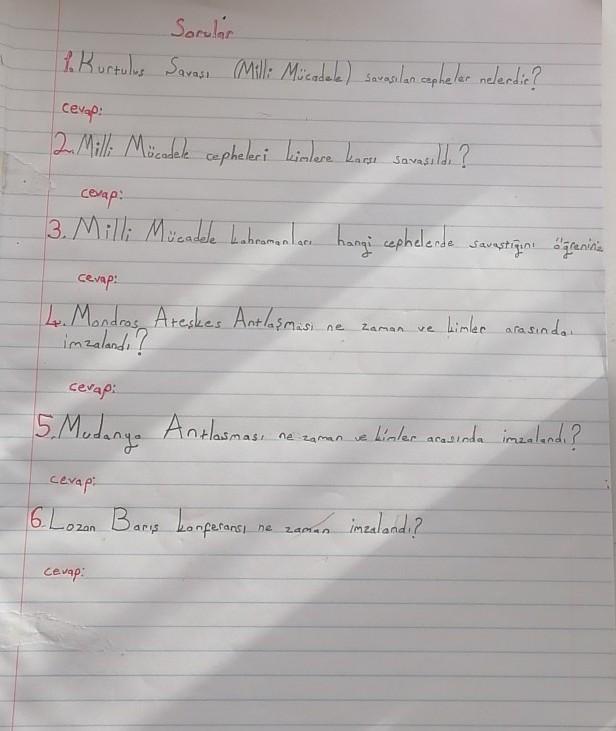 Sorular
1. Kurtulus Savası (Milli Mücadele) savasılan cepheler nelerdir?
cevap:
2. Milli Mücadele cepheleri kimlere karsı savasıldı?
cevap:
3. Milli Mücadele kahramanları hangi cephelerde savastığını öğreniniz
cevap:
4. Mondros Ateskes Antlaşması ne zaman ve kimler arasında
imzalandı?
cevap:
5. Mudanya Antlasması ne zaman ve kimler arasında imzalandı?
cevap:
6. Lozan Barış konferansı ne zaman imzalandı?
cevap: